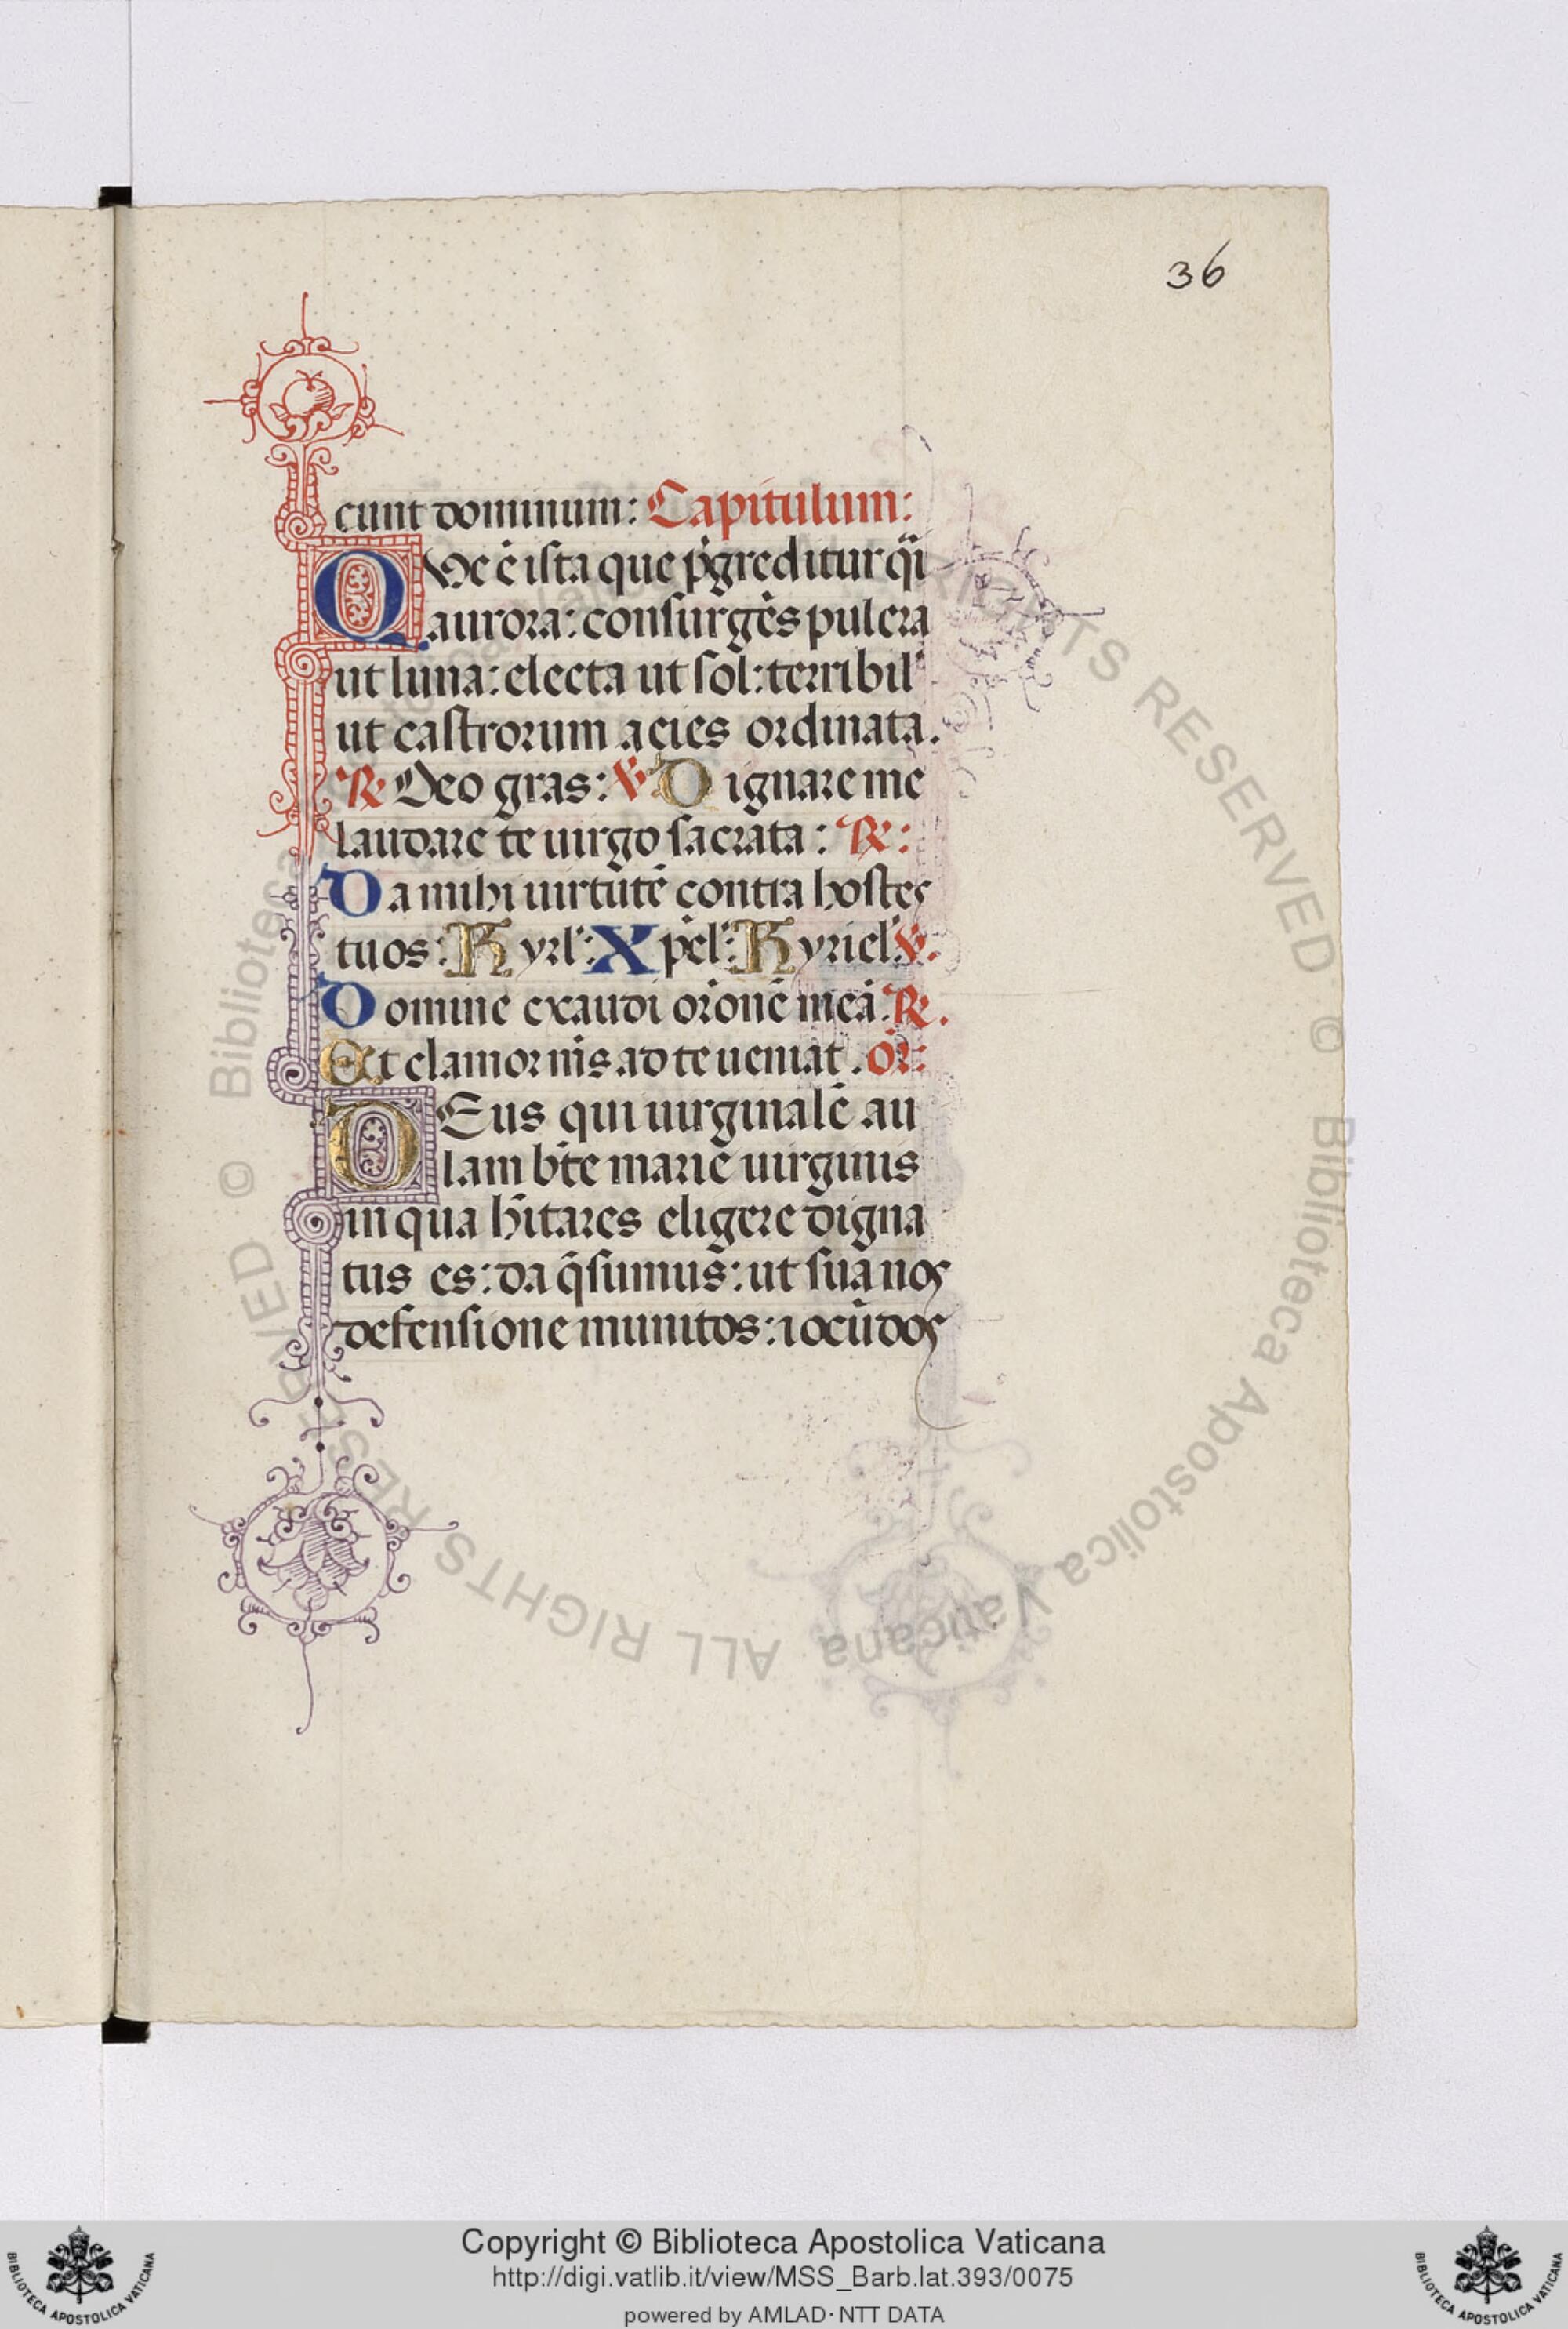 36
cunt dominum: Capitulum:
Que ē ista que p̄greditur q̄i
aurora: consurgēs pulcra
ut luna: electa ut sol: terribil'
ut castrorum acies ordinata.
℟ Deo gras: ℣ Dignare me
laudare te uirgo sacrata: ℟:
Da mihi uirtutē contra hostes
tuos: Kyrl': Xpel': Kyriel' ℣.
Domine exaudi orōnē meā. ℟.
Et clamor mīs ad te ueniat. Or̄:
DEus qui uirginalē au
lam btē marie uirginis
in qua hītares eligere digna
tus es: da q̄sumus: ut sua nos
defensione munitos: iocūdos
© Biblioteca Apostolica Vaticana ALL RIGHTS RESERVED
Copyright © Biblioteca Apostolica Vaticana
http://digi.vatlib.it/view/MSS_Barb.lat.393/0075
powered by AMLAD·NTT DATA
BIBLIOTECA APOSTOLICA VATICANA
BIBLIOTECA APOSTOLICA VATICANA